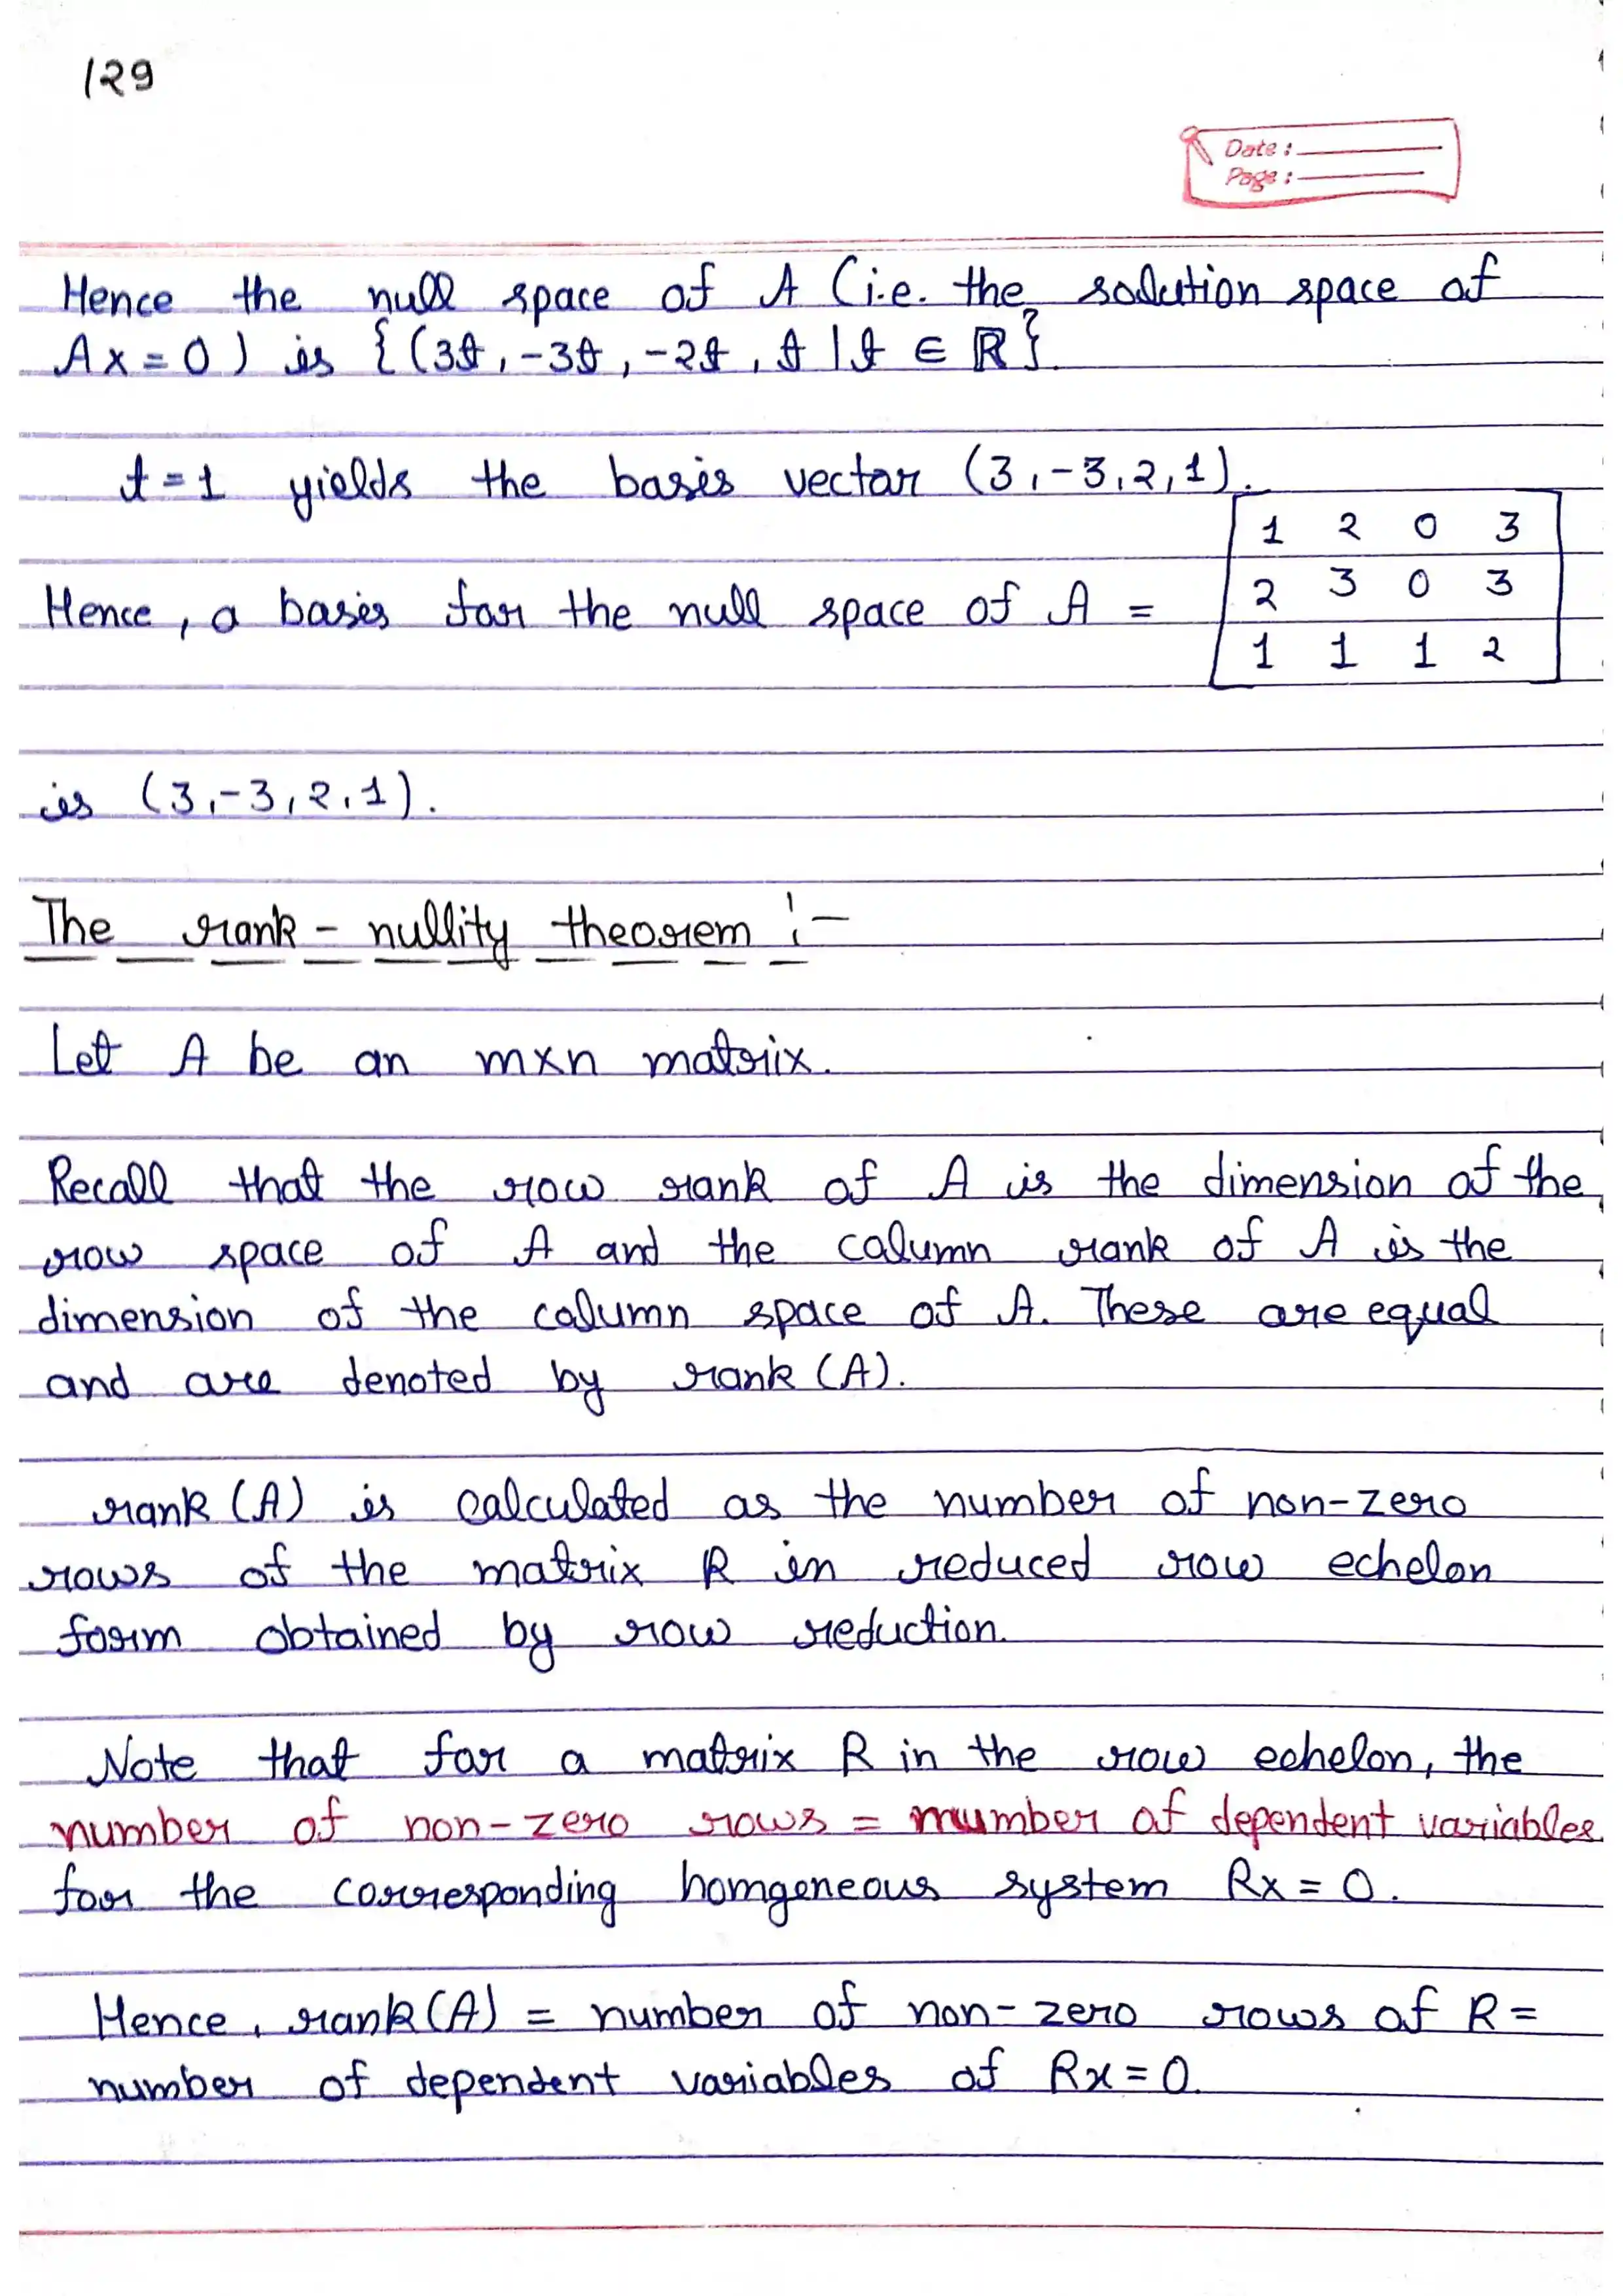 129
Date :
Page :
Hence the null space of A (i.e. the solution space of
Ax = 0) is {(3t, -3t, -2t, t | t ∈ ℝ}.
t = 1 yields the basis vector (3, -3, 2, 1).
1 2 0 3
Hence, a basis for the null space of A = 2 3 0 3
1 1 1 2
is (3, -3, 2, 1).
The rank - nullity theorem :-
Let A be an m×n matrix.
Recall that the row rank of A is the dimension of the
row space of A and the column rank of A is the
dimension of the column space of A. These are equal
and are denoted by rank (A).
rank (A) is calculated as the number of non-zero
rows of the matrix R in reduced row echelon
form obtained by row reduction.
Note that for a matrix R in the row echelon, the
number of non-zero rows = number of dependent variables
for the corresponding homgeneous system Rx = 0.
Hence, rank(A) = number of non-zero rows of R =
number of dependent variables of Rx = 0.